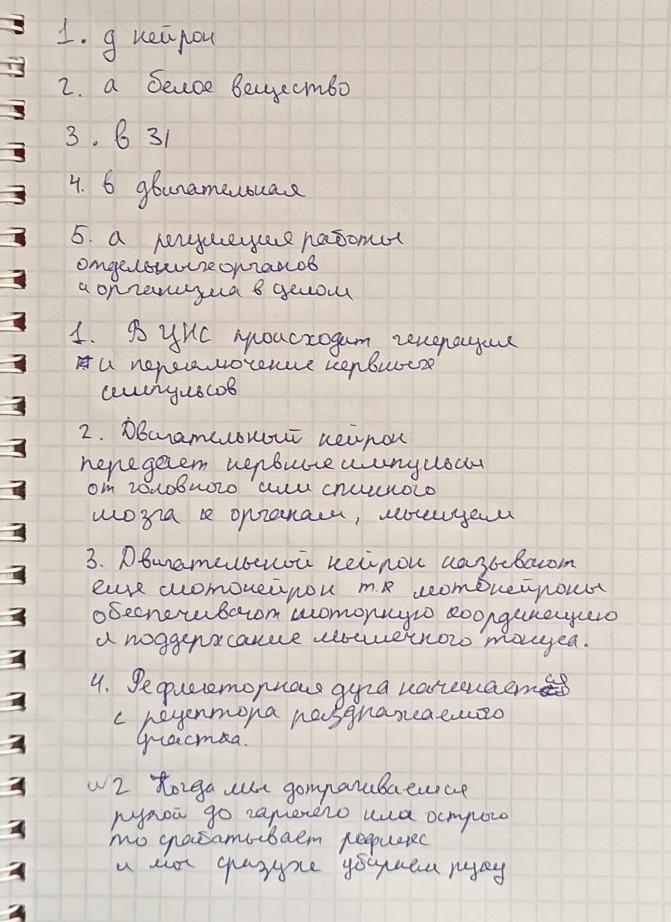 1. д нейрон
2. а белое вещество
3. в 31
4. в двигательная
5. а регуляция работы
отдельных органов
и организма в целом
1. В ЦНС происходит генерация
и переключение нервных
импульсов
2. Двигательный нейрон
передает нервные импульсы
от головного или спинного
мозга к органам, мышцам
3. Двигательный нейрон называют
еще мотонейрон т.к мотонейроны
обеспечивают моторную координацию
и поддержание мышечного тонуса.
4. Рефлекторная дуга начинается
с рецептора раздражаемого
участка.
№2 Когда мы дотрагиваемся
рукой до горячего или острого
то срабатывает рефлекс
и мы сразуже убираем руку